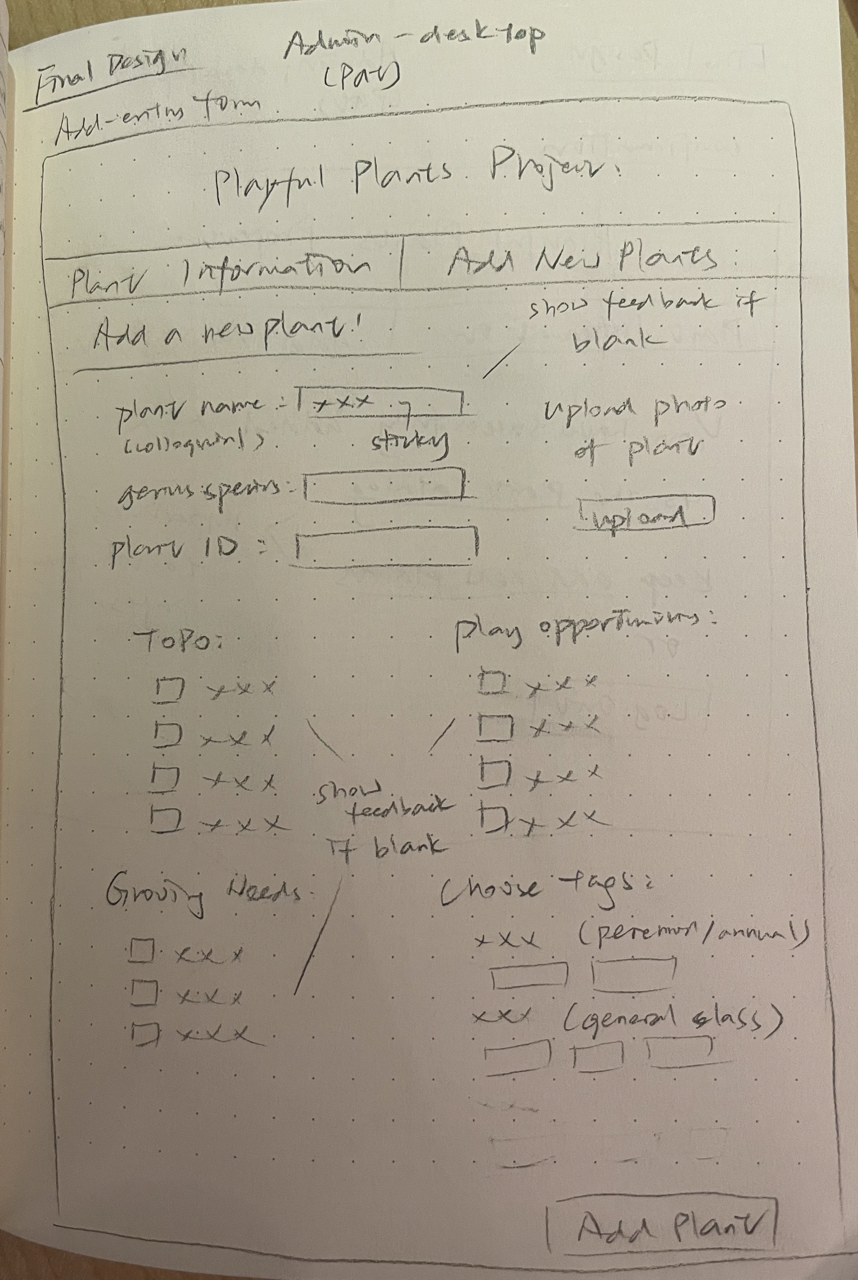 Final Design
Admin-desktop
(Pat)
Add-entry form
Playful Plants Project.
Plant Information | Add New Plants
Add a new plant!
show feedback if
blank
plant name : xxx
(colloquial)
sticky
genus species:
plant ID :
upload photo
of plant
upload
Topo:
xxx
xxx
xxx
xxx
play opportunities:
xxx
xxx
xxx
xxx
show
feedback
if blank
Growing Needs:
xxx
xxx
xxx
choose tags:
xxx (perennial/annual)
xxx (general class)
Add Plant